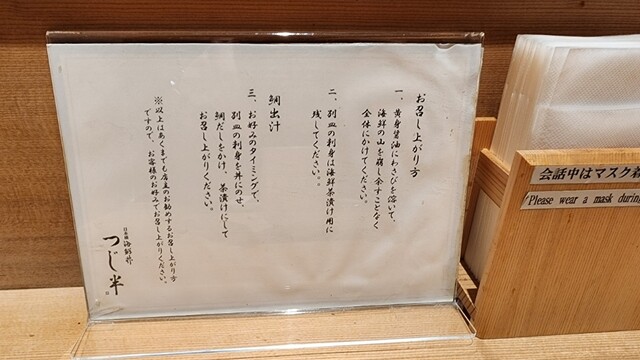 お召し上がり方
一、黄身醤油にわさびを溶いて、
海鮮の山を崩し余すことなく
全体にかけてください。
二、別皿の刺身は海鮮茶漬け用に
残してください。
鯛出汁
三、お好みのタイミングで、
別皿の刺身を丼にのせ、
鯛だしをかけ、茶漬けにして
お召し上がりください。
※以上はあくまでも店主のお勧めするお召し上がり方
ですので、お客様のお好みでお召し上がりください。
日本橋 海鮮丼
つじ半
会話中はマスク着
Please wear a mask durin